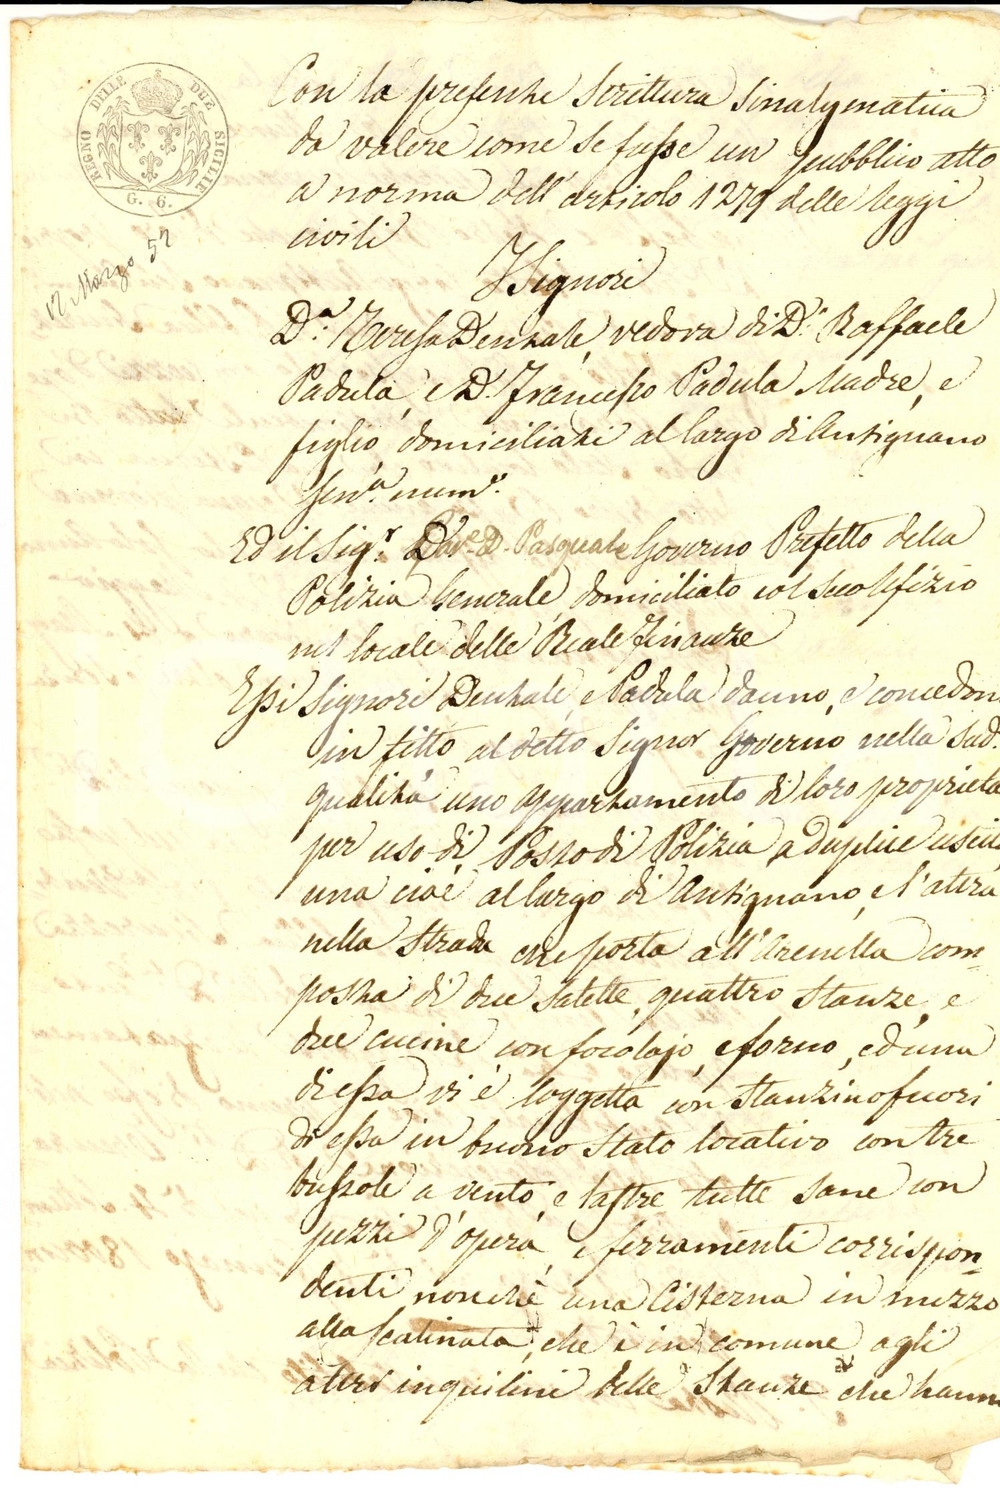 REGNO DELLE DUE SICILIE
G. 6.
17 Marzo 57
Con la presente scrittura sinalgmatica
da valere come se fusse un pubblico atto
a norma dell'articolo 1279 delle leggi
civili
I Signori
D.a Teresa Dentale, vedova di D.n Raffaele
Padula, e D. Francesco Padula Madre, e
figlio, domiciliati al largo di Antignano
sen.a num.o
Ed il Sig.r Cav.e D. Pasquale Governo Prefetto della
Polizia Generale, domiciliato col suo Ufizio
nel locale delle Reale Finanze
Essi Signori Dentale, e Padula danno, e concedon
in fitto al detto Signor Governo nella sud.
qualità uno appartamento di loro proprietà
per uso di Posto di Polizia, a duplice uscit
una cioè al largo di Antignano, e l'altra
nella Strada che porta all'Arenella com-
posta di due salette, quattro stanze, e
due cucine con focolajo, e forno, ed una
di essa vi è loggetta con stanzino fuori
di essa in buono stato locativo con tre
bussole a vento, e lastre tutte sane con
pezzi d'opera, e ferramenti corrispon-
denti nonchè una Cisterna in mezzo
alla scalinata, che è in comune agli
altri inquilini delle Stanze che hanno